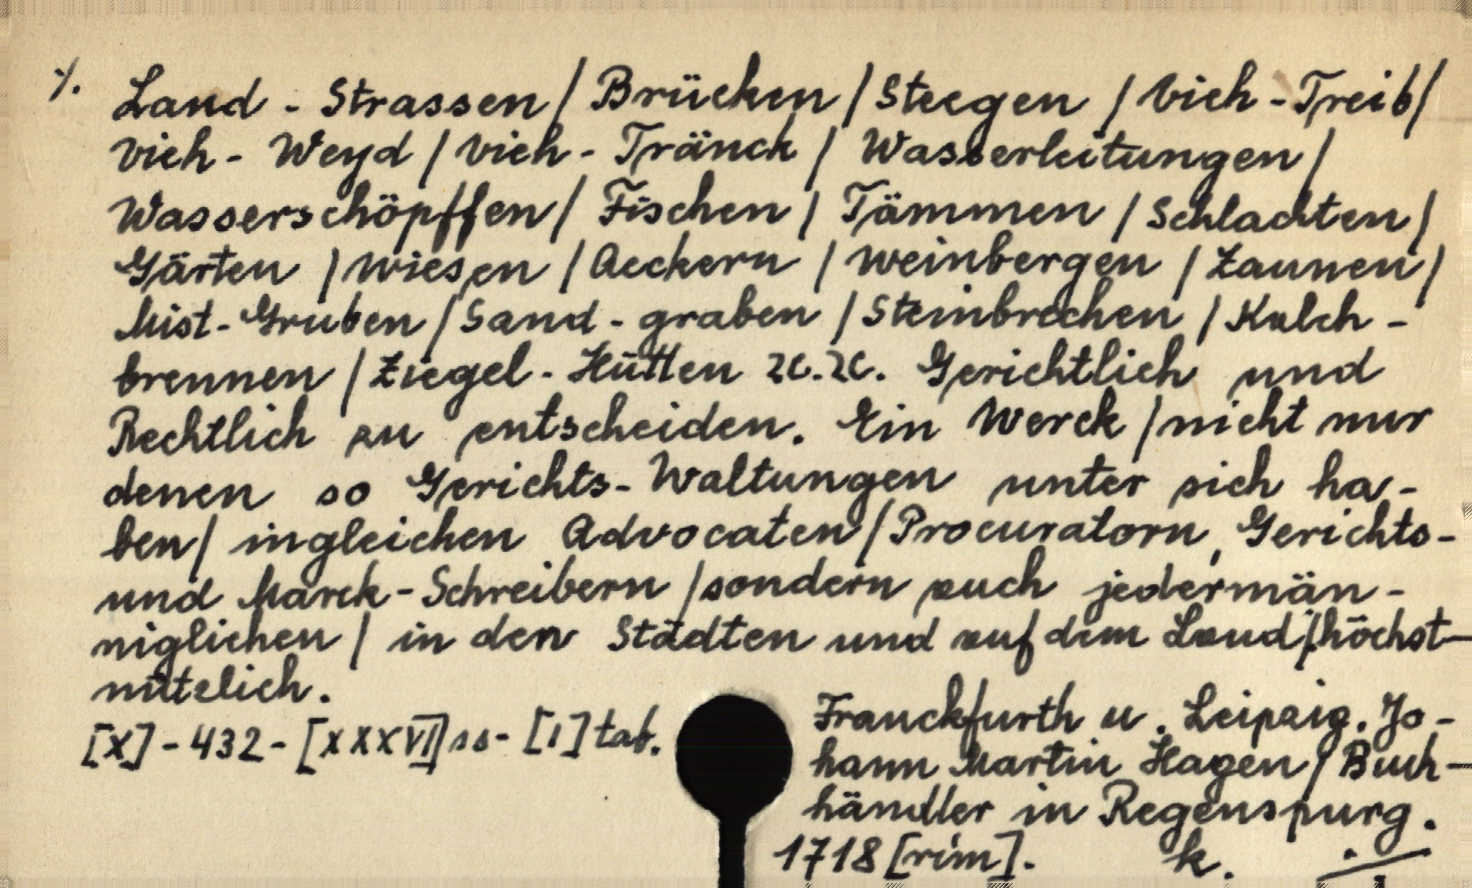 ⁒ Land - Strassen / Brücken / Steegen / Vieh - Treib /
Vieh - Weyd / Vieh - Tränck / Wasserleitungen /
Wasserschöpffen / Fischen / Tämmen / Schlachten /
Gärten / Wiesen / Aeckern / Weinbergen / Zaunen /
Mist - Gruben / Sand - graben / Steinbrechen / Kalch -
brennen / Ziegel - Hütten ꝛc. ꝛc. Gerichtlich und
Rechtlich zu entscheiden. Ein Werck / nicht nur
denen so Gerichts - Waltungen unter sich ha -
ben / ingleichen Advocaten / Procuratorn, Gerichts -
und Marck - Schreibern / sondern auch jedermän -
niglichen / in den Städten und auf dem Land / höchst -
nützlich.
[X] - 432 - [XXXVI] ss - [1] tab.
Franckfurth u. Leipzig. Jo -
hann Martin Hagen / Buch -
händler in Regenspurg.
1718 [rim].
k. ./.